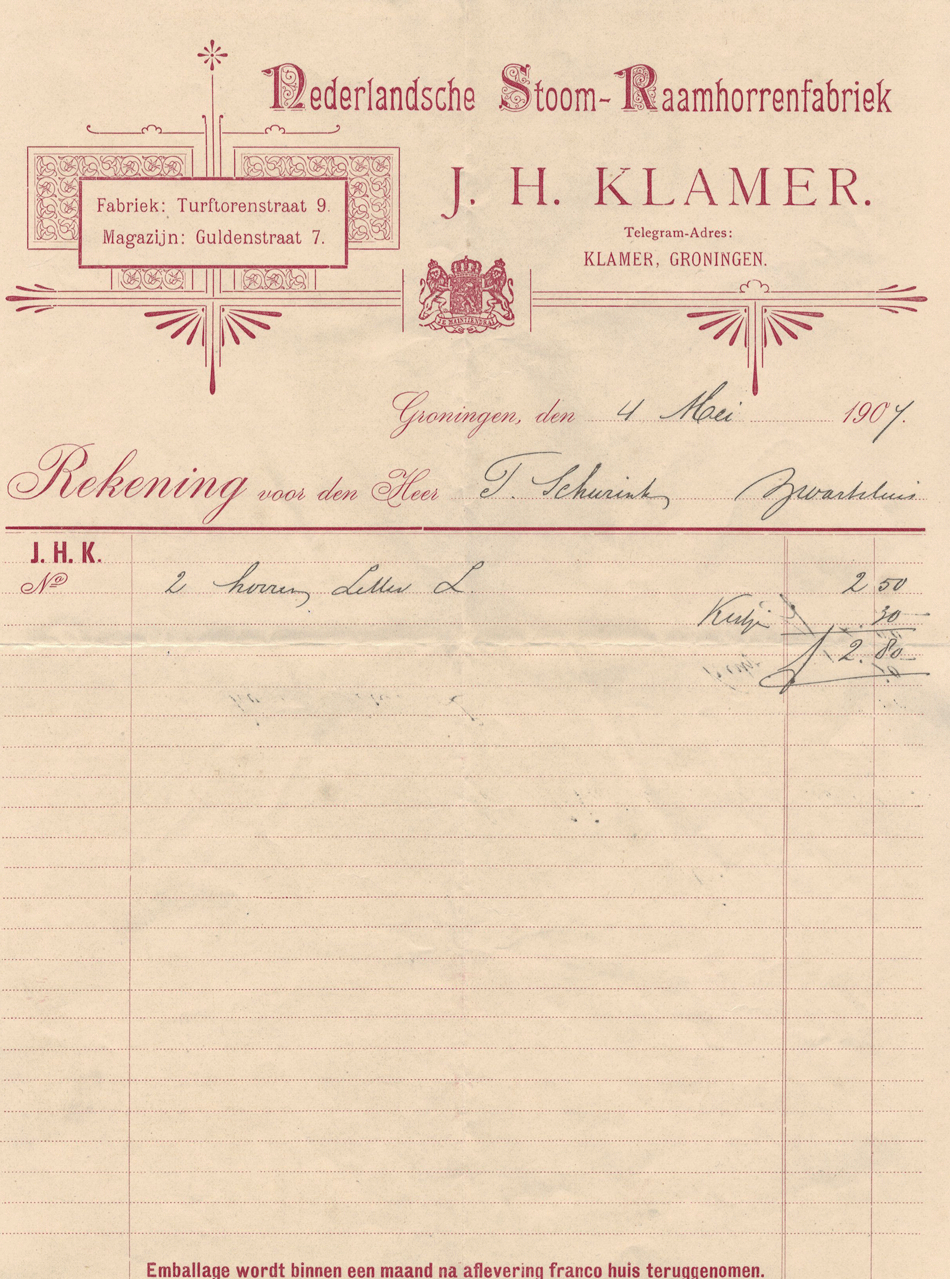 Nederlandsche Stoom-Raamhorrenfabriek
J. H. KLAMER.
Fabriek: Turftorenstraat 9.
Magazijn: Guldenstraat 7.
Telegram-Adres:
KLAMER, GRONINGEN.
JE MAINTIENDRAI
Groningen, den 4 Mei 1907.
Rekening voor den Heer T. Schurink, Zwartsluis
J. H. K.
No
2 horren Letter L. 2 50
Kistje . 30
f 2.80
Emballage wordt binnen een maand na aflevering franco huis teruggenomen.